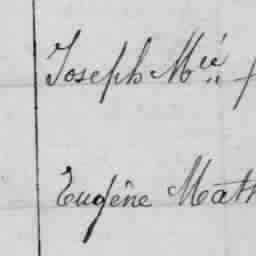 Joseph M.ie
Eugène Math